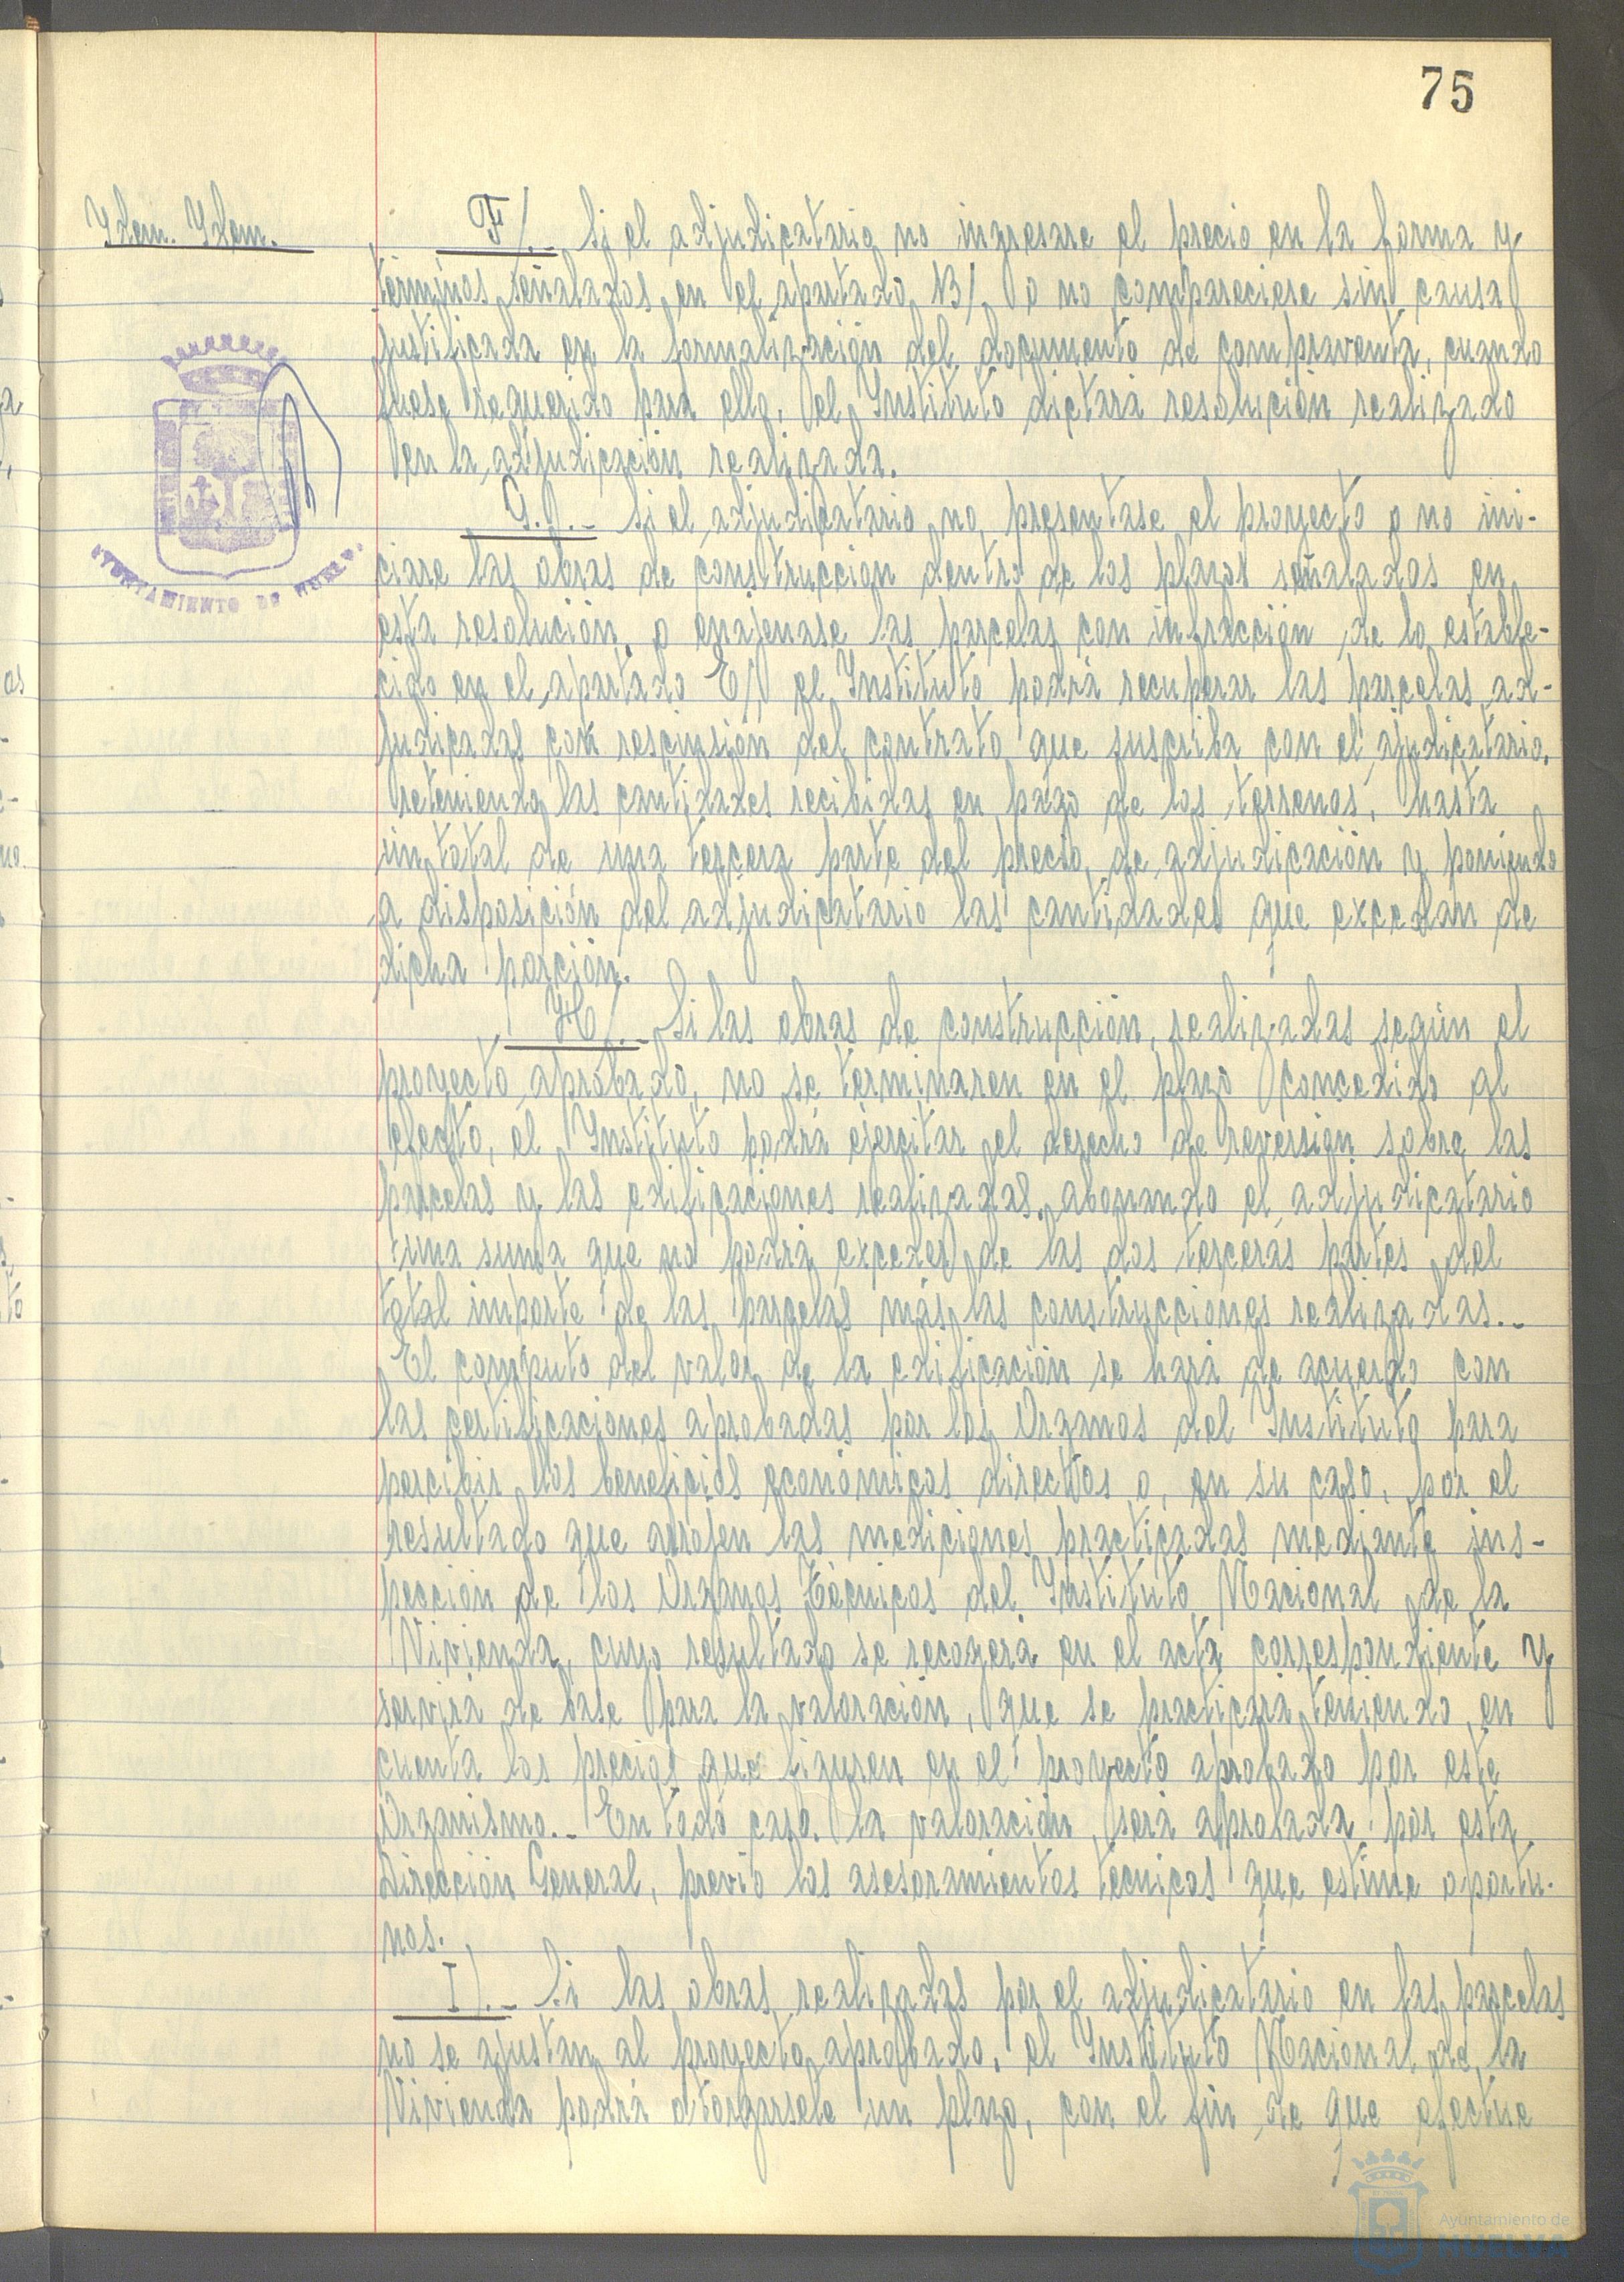 75
Ydem. Ydem.
F/.- Si el adjudicatario no ingresare el precio en la forma y
términos señalados en el apartado B/ o no compareciere sin causa
justificada en la formalización del documento de compraventa, cuando
fuese requerido para ello, el Instituto dictará resolución realizado
en la adjudicación realizada.
G.).- Si el adjudicatario no presentase el proyecto o no ini-
ciare las obras de construcción dentro de los plazos señalados en
esta resolución, o enajenase las parcelas con infracción de lo estable-
cido en el apartado E/, el Instituto podrá recuperar las parcelas ad-
judicadas con rescisión del contrato que suscriba con el ajudicatario,
reteniendo las cantidades recibidas en pago de los terrenos, hasta
un total de una tercera parte del precio de adjudicación y poniendo
a disposición del adjudicatario las cantidades que excedan de
dicha porción.
H/.- Si las obras de construcción, realizadas según el
proyecto aprobado, no se terminaren en el plazo concedido al
efecto, el Instituto podrá ejercitar el derecho de reversión sobre las
parcelas y las edificaciones realizadas, abonando el adjudicatario
una suma que no podrá exceder de las dos terceras partes del
total importe de las parcelas más las construcciones realizadas.-
El computo del valor de la edificación se hará de acuerdo con
las certificaciones aprobadas por los Organos del Instituto para
percibir los beneficios económicos directos o, en su caso, por el
resultado que arrojen las mediciones practicadas mediante ins-
pección de los Organos Técnicos del Instituto Nacional de la
Vivienda, cuyo resultado se recogerá en el acta correspondiente y
servirá de base para la valoración, que se practicará teniendo en
cuenta los precios que figuren en el proyecto aprobado por este
Organismo.- En todo caso, la valoración, será aprobada por esta
Dirección General, previo los asesoramientos tecnicos que estime oportu-
nos.
I).- Si las obras realizadas por el adjudicatario en las parcelas
no se ajustan al proyecto aprobado, el Instituto Nacional de la
Vivienda podrá otorgarsele un plazo, con el fin de que efectue
AYUNTAMIENTO DE HUELVA
Ayuntamiento de
HUELVA